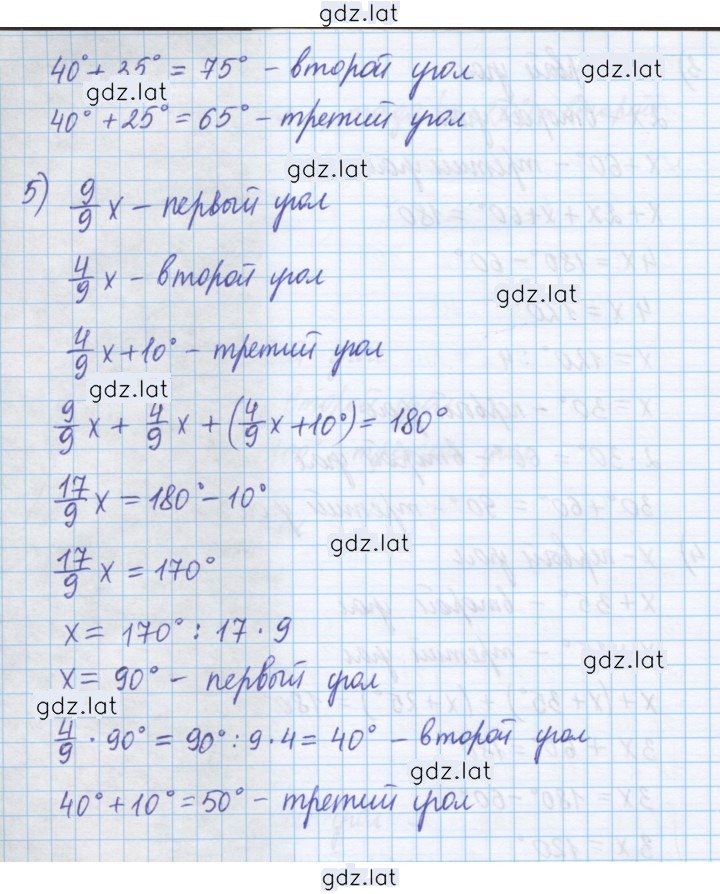 gdz.lat
40° + 25° = 75° – второй угол gdz.lat
gdz.lat
40° + 25° = 65° – третий угол
gdz.lat
5) 9/9 x – первый угол
4/9 x – второй угол
gdz.lat
4/9 x + 10° – третий угол
gdz.lat
9/9 x + 4/9 x + (4/9 x + 10°) = 180°
17/9 x = 180° – 10°
gdz.lat
17/9 x = 170°
x = 170° : 17 · 9
gdz.lat
x = 90° – первый угол
gdz.lat
4/9 · 90° = 90° : 9 · 4 = 40° – второй угол
gdz.lat
40° + 10° = 50° – третий угол
gdz.lat